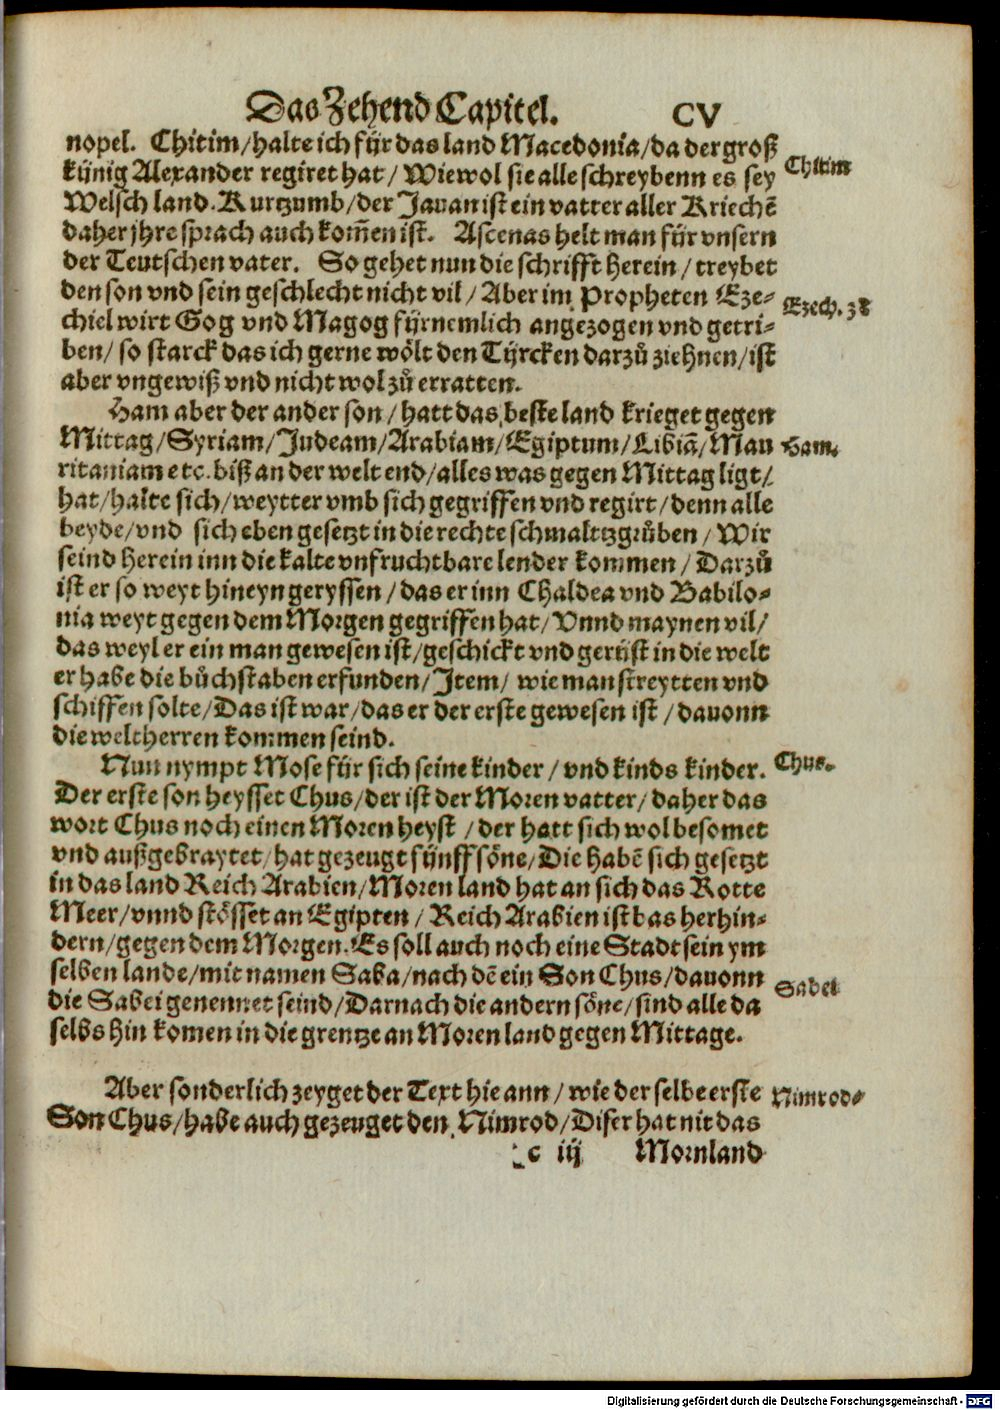 Das Zehend Capitel. CV
nopel. Chitim/halte ich für das land Macedonia/da der groß
künig Alexander regiret hat/ Wiewol sie alle schreybenn es sey
Chitim
Welsch land. Kurtzumb/der Jauan ist ein vatter aller Kriechē
daher jhre sprach auch kom̄en ist. Ascenas helt man für vnsern
der Teutschen vater. So gehet nun die schrifft herein/treybet
den son vnd sein geschlecht nicht vil/Aber im Propheten Eze-
Ezech. 38
chiel wirt Gog vnd Magog fürnemlich angezogen vnd getri-
ben/so starck das ich gerne wölt den Türcken darzů ziehnen/ist
aber vngewiß vnd nicht wol zů erratten.
Ham aber der ander son/hatt das beste land krieget gegen
Mittag/Syriam/Judeam/Arabiam/Egiptum/Libiā/Mau
Ham.
ritaniam etc. biß an der welt end/alles was gegen Mittag ligt/
hat/halte sich/weytter vmb sich gegriffen vnd regirt/denn alle
beyde/vnd sich eben gesetzt in die rechte schmaltzgrůben/Wir
seind herein inn die kalte vnfruchtbare lender kommen/Darzů
ist er so weyt hineyn geryssen/das er inn Chaldea vnd Babilo-
nia weyt gegen dem Morgen gegriffen hat/Vnnd maynen vil/
das weyl er ein man gewesen ist/geschickt vnd gerüst in die welt
er habe die bůchstaben erfunden/Item/wie man streytten vnd
schiffen solte/Das ist war/das er der erste gewesen ist/dauonn
die weltherren kommen seind.
Nun nympt Mose für sich seine kinder/vnd kinds kinder.
Chus.
Der erste son heysset Chus/der ist der Moren vatter/daher das
wort Chus noch einen Moren heyst/der hatt sich wol besomet
vnd außgebraytet/hat gezeugt fünff söne/Die habē sich gesetzt
in das land Reich Arabien/Moren land hat an sich das Rotte
Meer/vnnd stösset an Egipten/Reich Arabien ist bas herhin-
dern/gegen dem Morgen. Es soll auch noch eine Stadt sein ym
selben lande/mit namen Saba/nach dē ein Son Chus/dauonn
Sabei
die Sabei genennet seind/Darnach die andern söne/sind alle da
selbs hin komen in die grentze an Moren land gegen Mittage.
Aber sonderlich zeyget der Text hie ann/wie der selbe erste
Nimrod.
Son Chus/habe auch gezeuget den Nimrod/Diser hat nit das
c iij Mornland
Digitalisierung gefördert durch die Deutsche Forschungsgemeinschaft - DFG